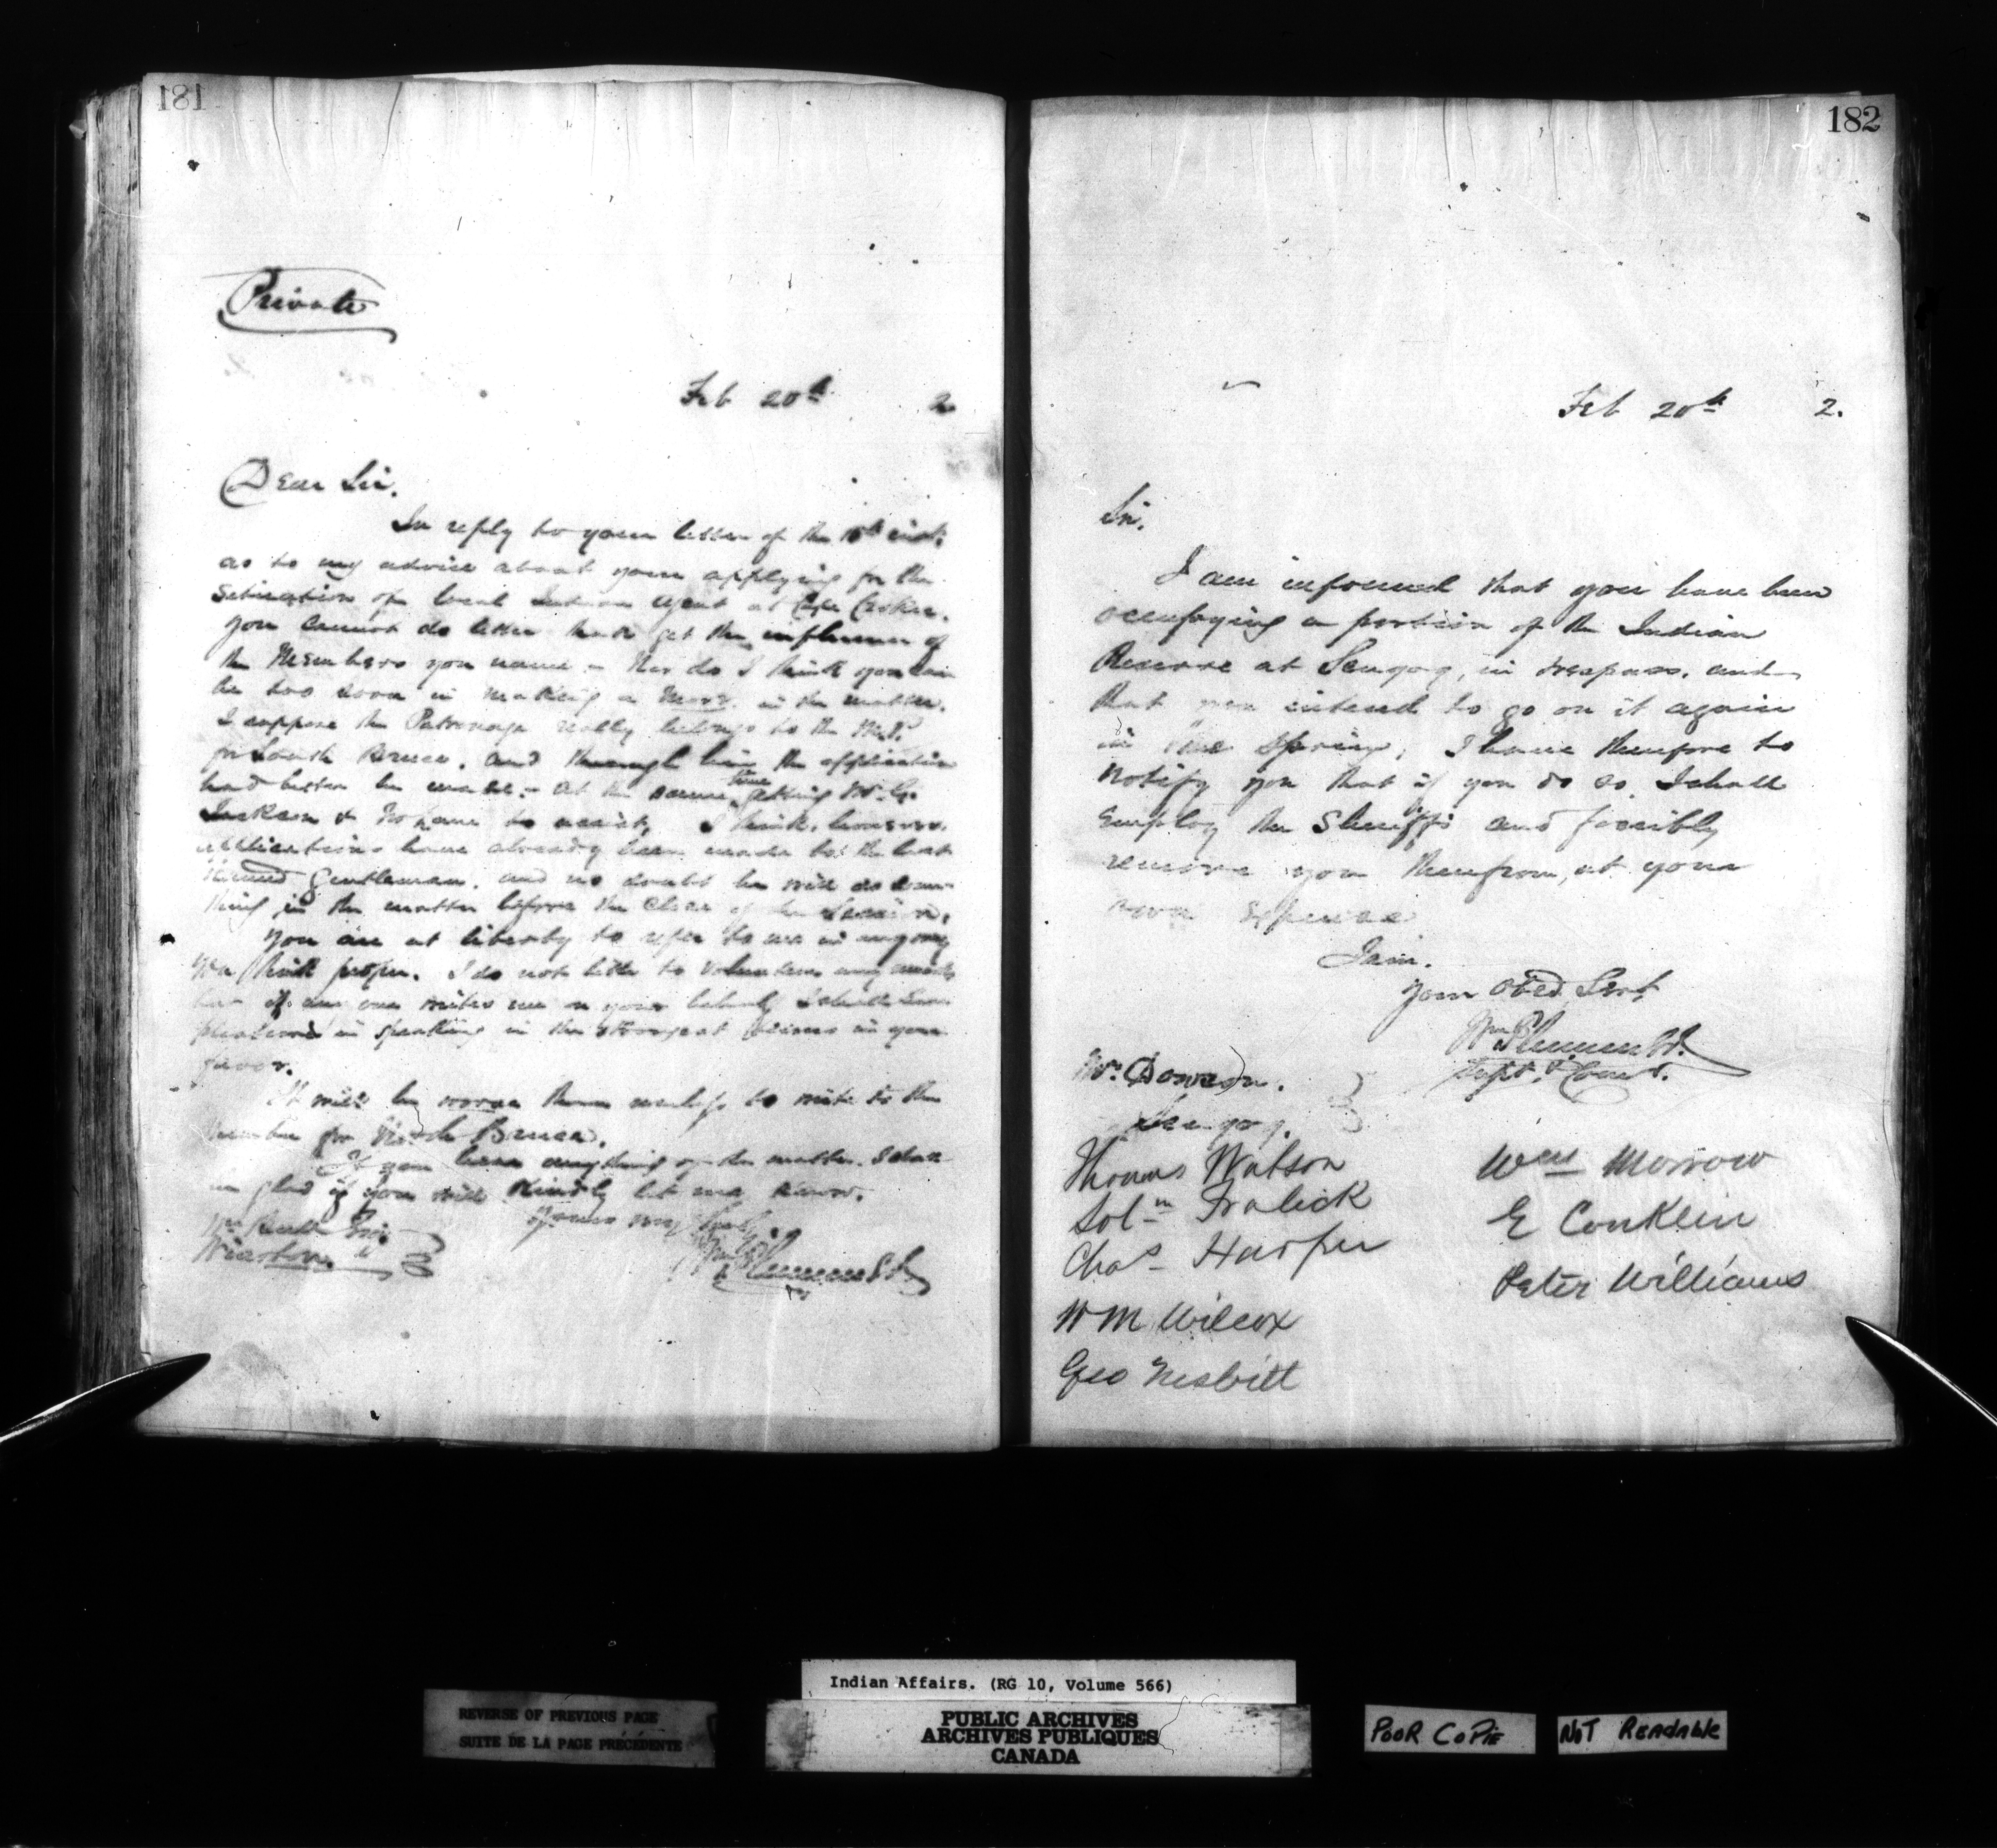 181
Private
Feb 20th 2
Dear Sir.
In reply to your letter of the inst:
as to my advice about your applying for the
Situation of local Indian Agent at Cape Croker.
You cannot do better than get the influence of
the Members you name - Nor do I think you can
be too soon in making a move in the matter.
I suppose the Patronage really belongs to the M.P.
for South Bruce. and through him the application
had better be made. - at the same time getting
to assist, I think, however,
applications have already been made to the last
named gentleman. and no doubt he will do some-
thing in the matter before the close of the Session.
You are at liberty to refer to me in any way
you think proper. I do not like to volunteer any
but if any one writes me on your behalf I shall have
pleasure in speaking in the strongest terms in your
favor.
It will be worse than useless to write to the
Member for North Bruce.
If you hear anything of the matter. I shall
be glad if you will kindly let me know.
Yours very truly
Wm Plummer
Wiarton.
182
Feb 20th 2.
Sir.
I am informed that you have been
occupying a portion of the Indian
Reserve at Scugog, in trespass. and
that you intend to go on it again
in the Spring, I have therefore to
notify you that if you do so, I shall
employ the Sheriff and forcibly
remove you therefrom, at your
own expense
I am.
Your Obed. Servt
Wm Plummer
Supt. & Comr.
Mr. Dowson.
Scugog.
Thomas Watson
Solm Fralick
Chas Harper
Wm Wilcox
Geo Nesbitt
Wm Morrow
E Conklin
Peter Williams
Indian Affairs. (RG 10, Volume 566)
REVERSE OF PREVIOUS PAGE
SUITE DE LA PAGE PRÉCÉDENTE
PUBLIC ARCHIVES
ARCHIVES PUBLIQUES
CANADA
POOR COPIE
NOT READABLE